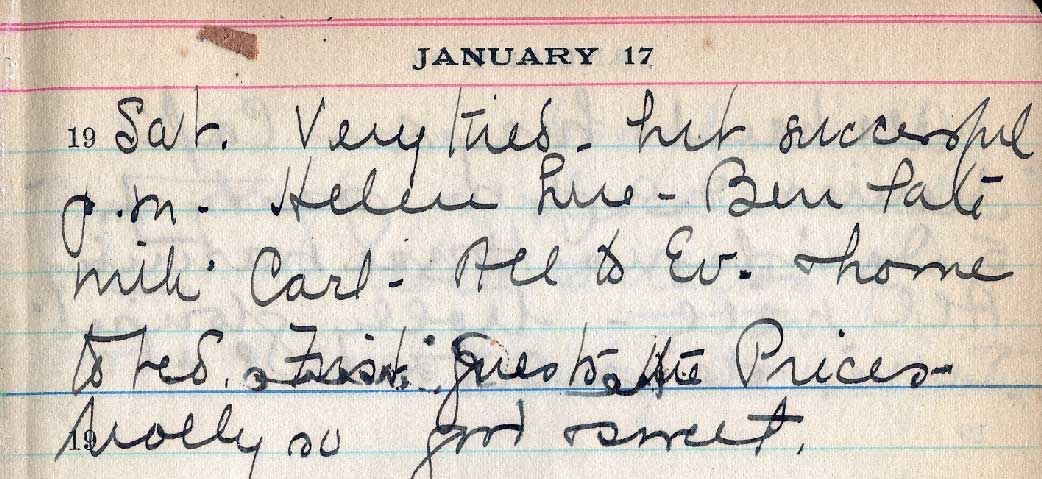 JANUARY 17
19 Sat. Very tired - but successful
p.m - Helen here - Ben late
with Carl - All to Ev. & home
to bed. First guests the Prices -
19 Molly so good & sweet.